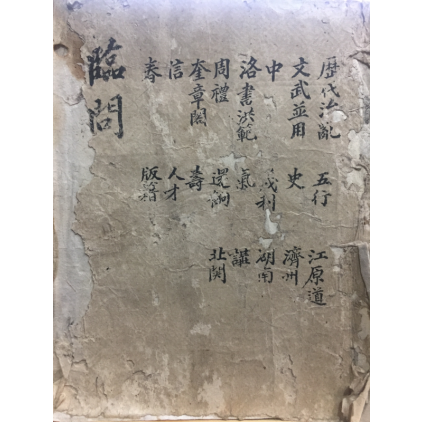 歷代治亂 五行 江原道
文武並用 史 濟州
中 利 湖南
洛書洪範 氣
周禮 還餉 北關
奎章閣 壽
信 人才
春 版籍
臨問